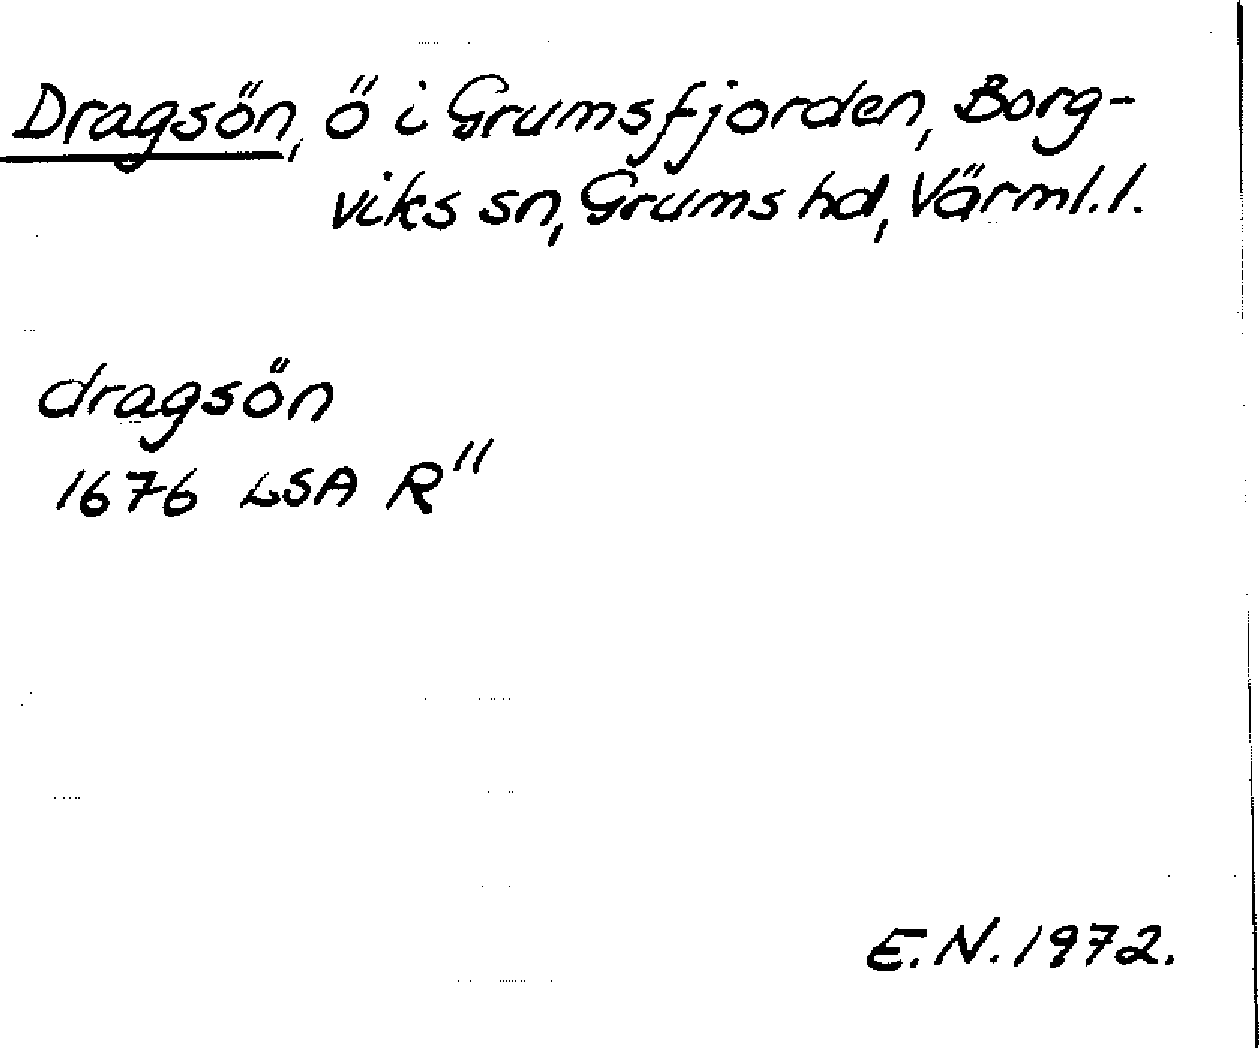 Dragsön, ö i Grumsfjorden, Borg-
viks sn, Grums hd, Värml. l.
dragsön
1676 LSA R"
E.N. 1972.